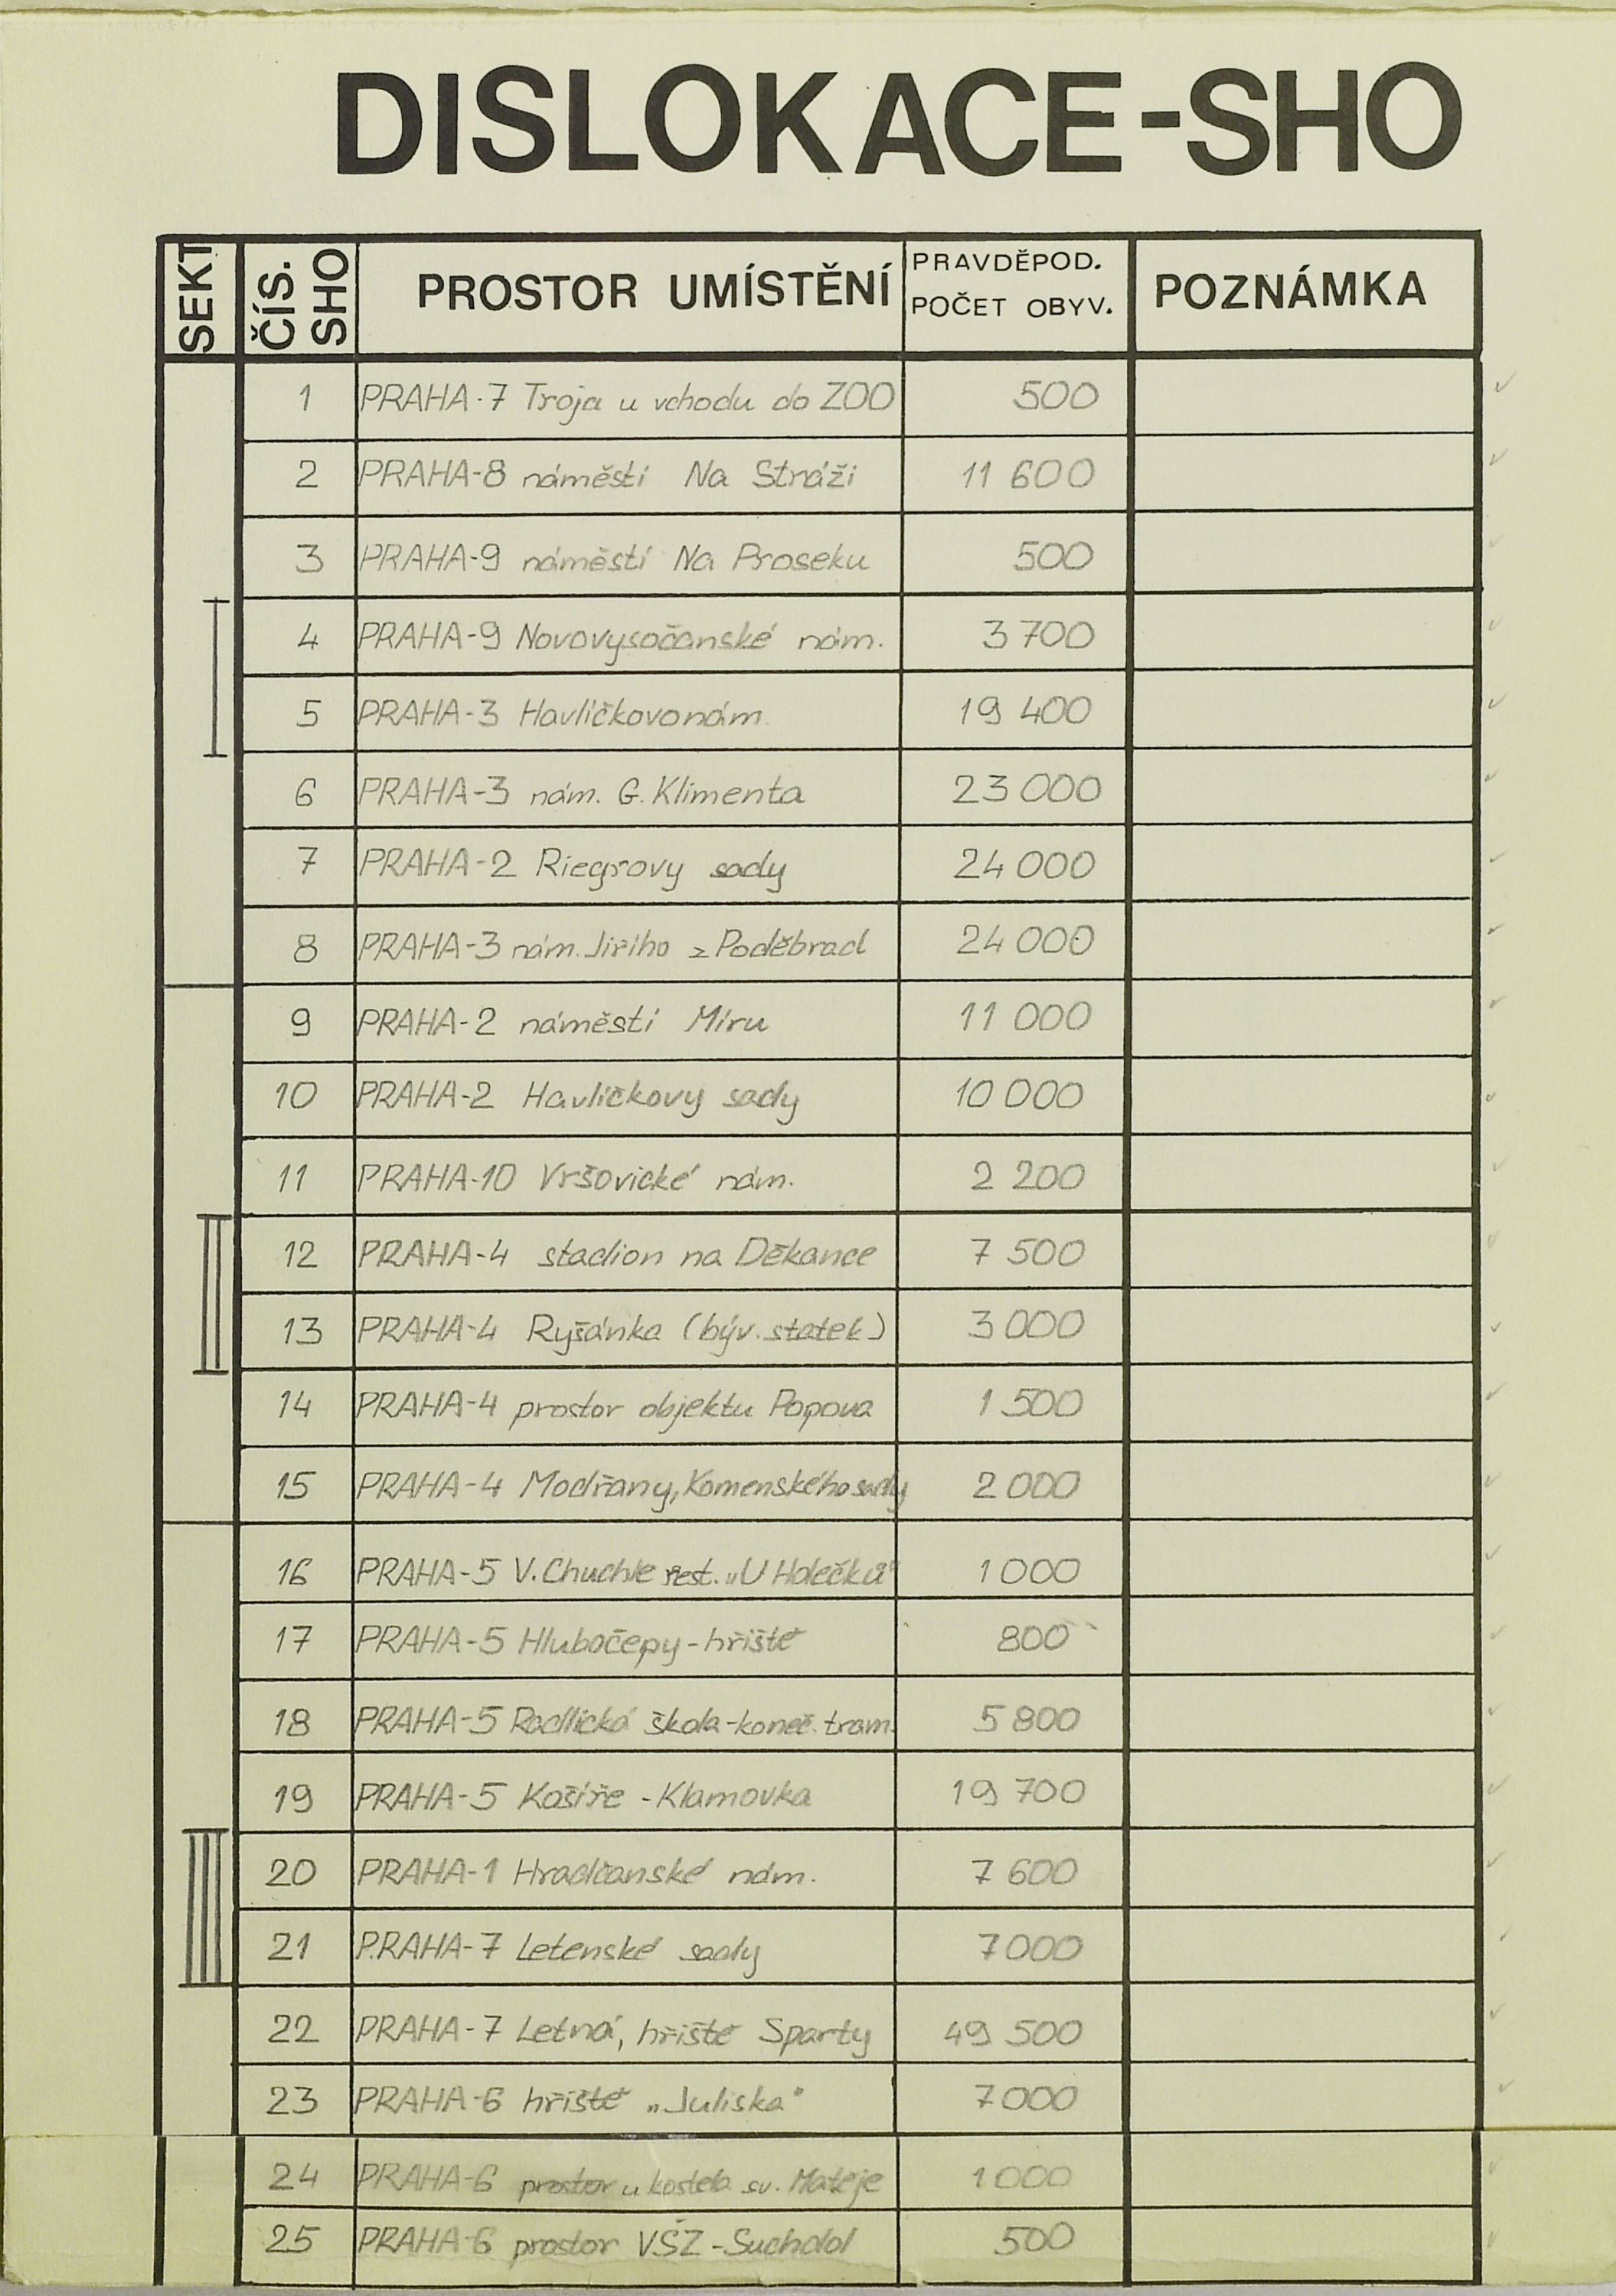 DISLOKACE-SHO
SEKT ČÍS. SHO PROSTOR UMÍSTĚNÍ PRAVDĚPOD. POČET OBYV. POZNÁMKA
1 PRAHA-7 Troja u vchodu do ZOO 500
2 PRAHA-8 náměstí Na Stráži 11 600
3 PRAHA-9 náměstí Na Proseku 500
I
4 PRAHA-9 Novovysočanské nám. 3 700
5 PRAHA-3 Havlíčkovo nám. 19 400
6 PRAHA-3 nám. G. Klimenta 23 000
7 PRAHA-2 Riegrovy sady 24 000
8 PRAHA-3 nám. Jiřího z Poděbrad 24 000
9 PRAHA-2 náměstí Míru 11 000
10 PRAHA-2 Havlíčkovy sady 10 000
11 PRAHA-10 Vršovické nám. 2 200
II
12 PRAHA-4 stadion na Děkance 7 500
13 PRAHA-4 Ryšánka (býv. statek) 3 000
14 PRAHA-4 prostor objektu Popova 1 500
15 PRAHA-4 Modřany, Komenského sady 2 000
16 PRAHA-5 V. Chuchle rest. „U Holečků" 1 000
17 PRAHA-5 Hlubočepy-hřiště 800
18 PRAHA-5 Radlická škola-koneč. tram. 5 800
19 PRAHA-5 Košíře - Klamovka 19 700
III
20 PRAHA-1 Hradčanské nám. 7 600
21 PRAHA-7 Letenské sady 7 000
22 PRAHA-7 Letná, hřiště Sparty 49 500
23 PRAHA-6 hřiště „Juliska" 7 000
24 PRAHA-6 prostor u kostela sv. Matěje 1 000
25 PRAHA-6 prostor VŠZ - Suchdol 500